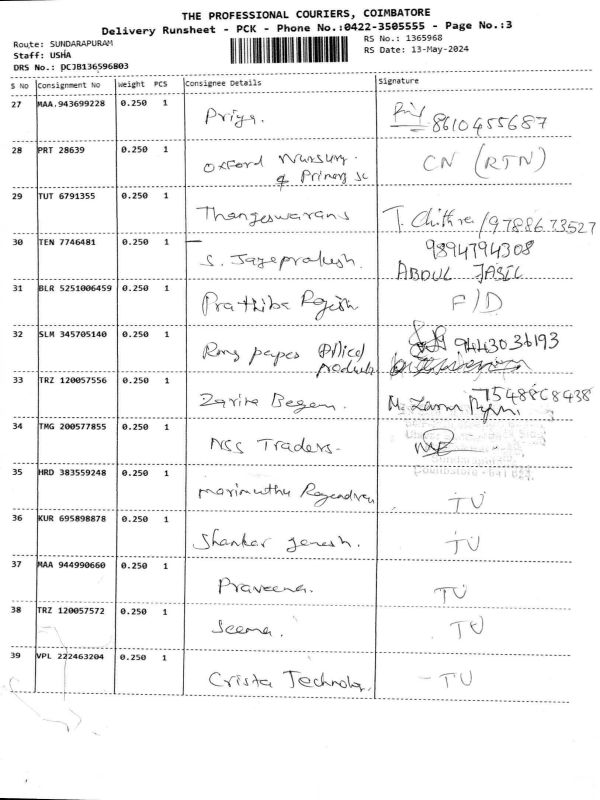 THE PROFESSIONAL COURIERS, COIMBATORE
Delivery Runsheet - PCK - Phone No.:0422-3505555 - Page No.:3
Route: SUNDARAPURAM
RS No.: 1365968
Staff: USHA
RS Date: 13-May-2024
DRS No.: DCJB136596803
S No Consignment No Weight PCS Consignee Details Signature
27 MAA.943699228 0.250 1 Priya. 8610455687
28 PRT 28639 0.250 1 Oxford Nursery. CN (RTN)
& Primary sc
29 TUT 6791355 0.250 1 Thangeswarans T. Chithra/9788673527
30 TEN 7746481 0.250 1 S. Jayeprakash. 9894794308
ABDUL JASIL
31 BLR 5251006459 0.250 1 Prathiba Rajesh F/D
32 SLM 345705140 0.250 1 papes 9443036193
products
33 TRZ 120057556 0.250 1 Zarina Begam. 7548868438
34 TMG 200577855 0.250 1 NSS Traders.
35 HRD 383559248 0.250 1 marimuthu Rajendran TU
36 KUR 695898878 0.250 1 Shankar ganesh. TU
37 MAA 944990660 0.250 1 Praveena. TU
38 TRZ 120057572 0.250 1 Seema. TU
39 VPL 222463204 0.250 1 Crista Technology. - TU